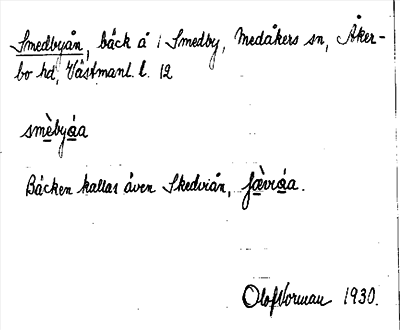 Smedbyån, bäck å i Smedby, Medåkers sn, Åker-
bo hd, Västmanl. l. 12
smèbyáa
Bäcken kallas även Skedviån, ʃæ̀viáa.
Olof Norman 1930.